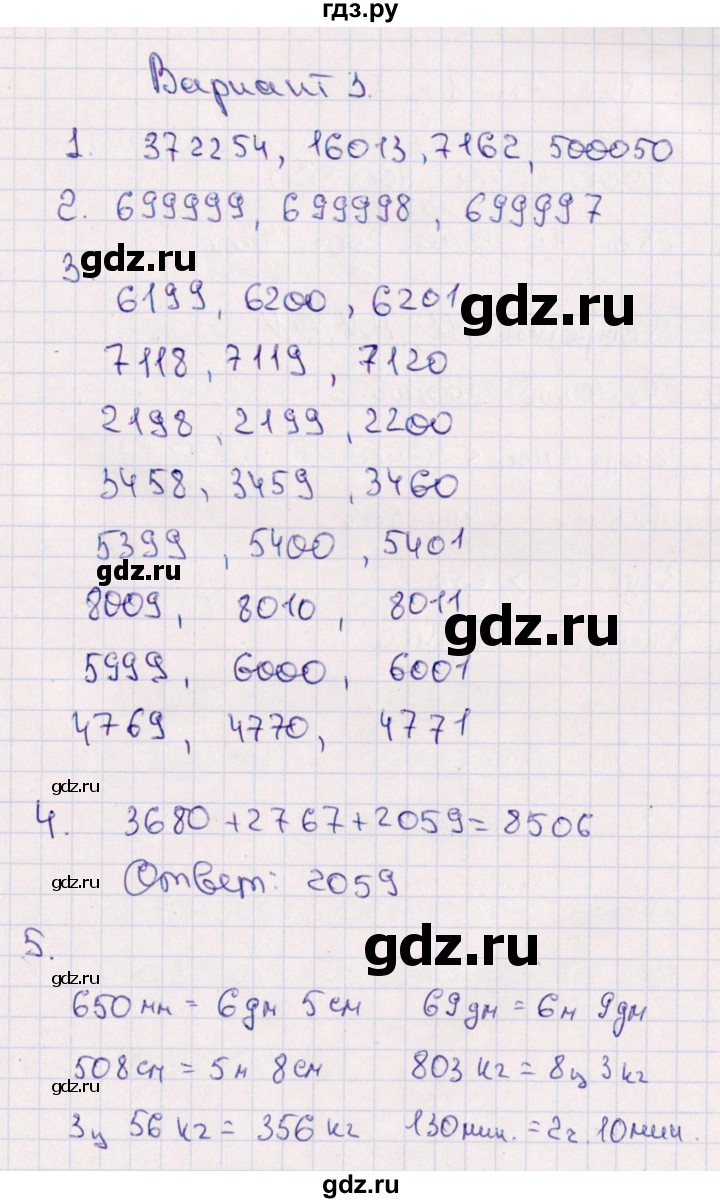 гдз.ру
Вариант 3.
1. 372254, 16013, 7162, 500050
2. 699999, 699998, 699997
3
gdz.ru
6199, 6200, 6201
gdz.ru
7118, 7119, 7120
2198, 2199, 2200
3458, 3459, 3460
5399, 5400, 5401
gdz.ru
8009, 8010, 8011
gdz.ru
5999, 6000, 6001
4769, 4770, 4771
gdz.ru
4. 3680+2767+2059=8506
gdz.ru
Ответ: 2059
5.
gdz.ru
gdz.ru
650мм = 6дм 5см 69дм = 6м 9дм
508см = 5м 8см 803 кг = 8ц 3кг
gdz.ru
3ц 56кг = 356 кг 130мин. = 2г. 10мин.
gdz.ru